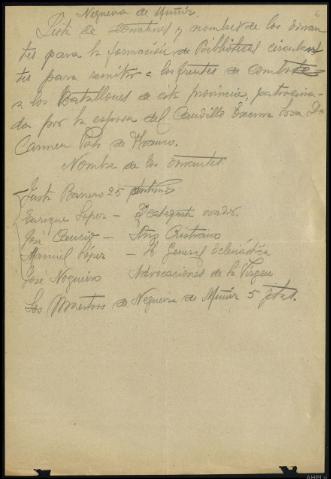 Negueira de Muñiz
Lista de donativos y nombres de los donan
tes para la formación de Bibliotecas circulan
tes para remitir a los frentes de combate
a los Batallones de esta provincia, patrocina
das por la esposa del Caudillo Excma Sra. Da
Carmen Polo de Franco.
Nombre de los donantes
Barrero 25
Enrique López –
José – Año Cristiano
Manuel López – Ha General Eclesiástica
José Nogueira Advocaciones de la Virgen
Los Maestros de Negueira de Muñiz 5 ptas.